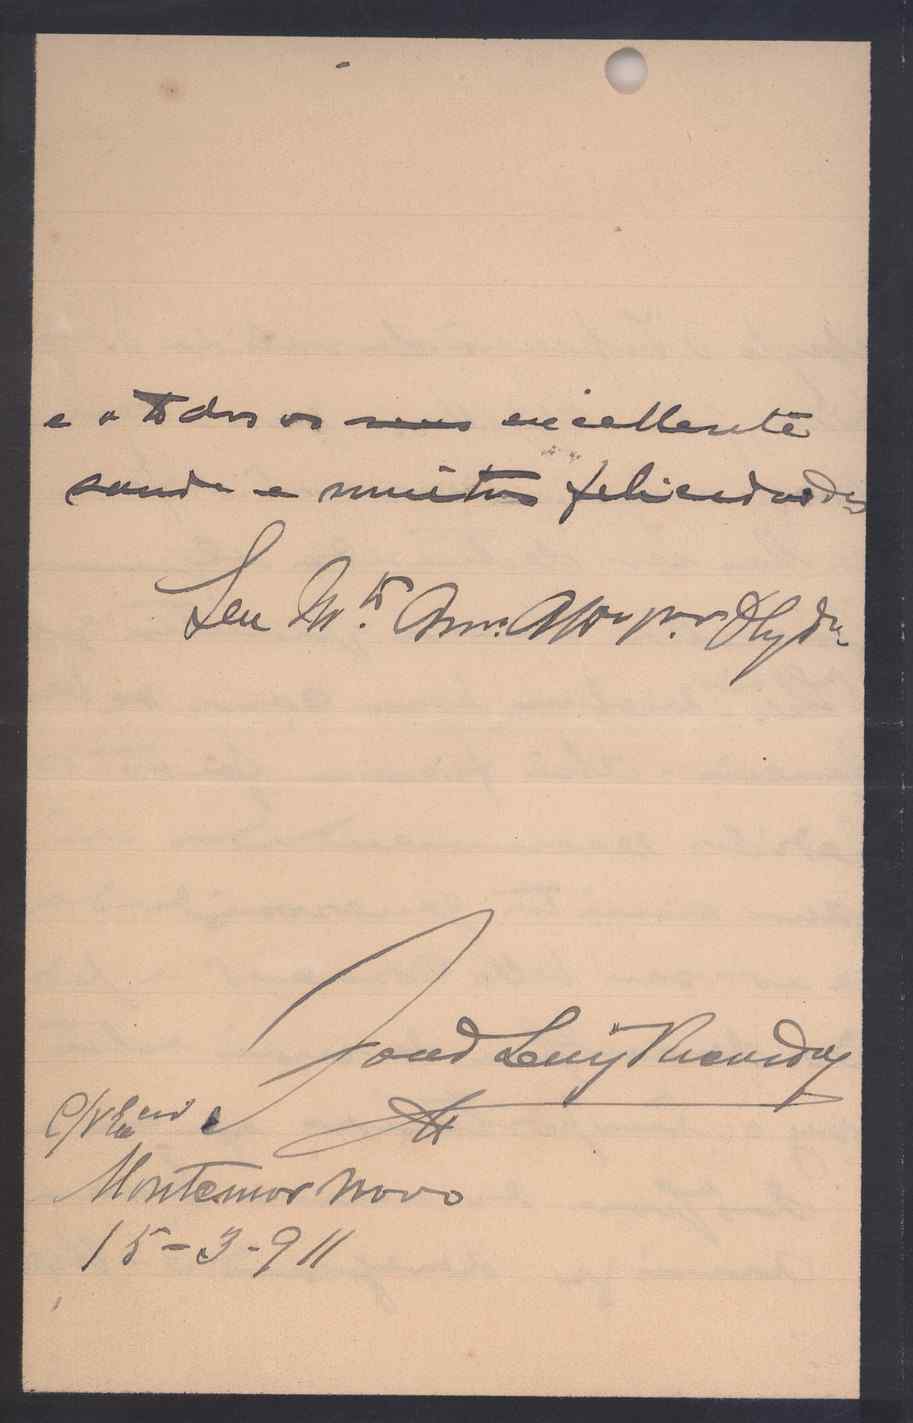 e a todos os seus excellente
saude e muitas felicidades
Seu M.to Am.o
José Luiz Ricardo
C/V Ex
Montemor Novo
15-3-911